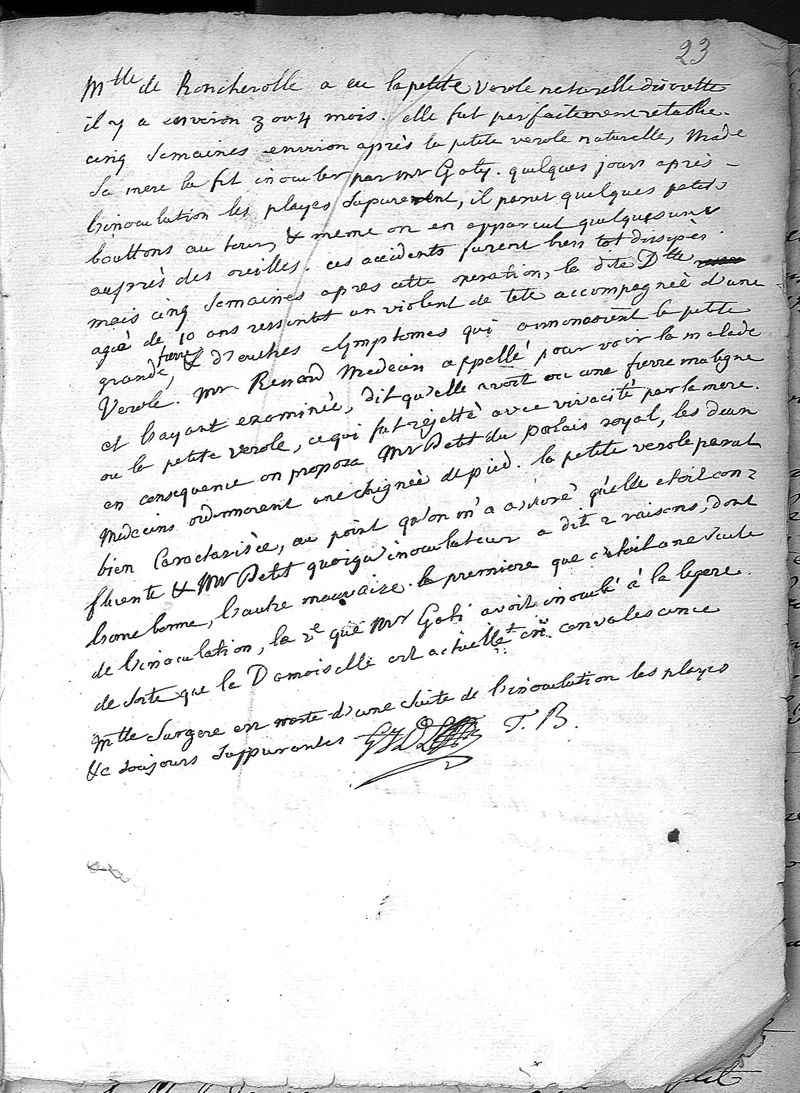 23
Mlle de Roncherolle a eu la petite verole naturelle discrette
il y a environ 3 ou 4 mois. elle fut parfaitement retablie.
cinq semaines environ après la petite verole naturelle, Made
sa mere la fit inoculer par mr Gaty. quelques jours après
l'inoculation les playes supurerent, il parut quelques petits
bouttons au tour, & meme on en apparcut quelques uns
auprès des oreilles. ces accidents furent bien tot dissipés.
mais cinq semaines apres cette operation, la dite Dlle
agée de 10 ans ressentit un violent de tete accompagnée d'une
grande fievre, & d'autres symptomes qui annoncoient la petite
Verole. Mr Renard Medecin appellé pour voir la malade
et l'ayant examinée, dit qu'elle avoit ou une fievre maligne
ou la petite verole, ce qui fut rejetté avec vivacité par la mere.
en consequence on proposa Mr Petit du palais royal, les deux
Medecins ordonnerent une saignée de pied. la petite verole parut
bien caractarisée, au point qu'on m'a assuré qu'elle etoit con=
fluente & Mr Petit quoiqu'inoculateur a dit 2 raisons, dont
l'une bonne, l'autre mauvaise. la premiere que c'etoit une suite
de l'inoculation, la 2e que Mr Gati avoit inoculé à la legere.
de sorte que la Damoiselle est actuellet en convalescence
Mlle Surgere est morte d'une suite de l'inoculation les playes
&c toujours suppurantes T. B.